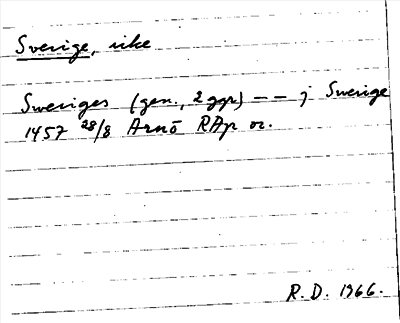 Sverige, rike
Sweriges (gen., 2 ggr) — — j Swerige
1457 28/8 Arnö RAp or.
R. D. 1966.